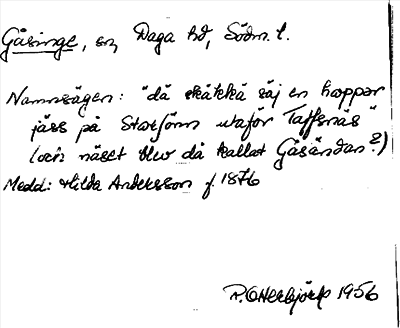 Gåsinge, sn, Daga hd, Södm. l.
Namnsägen: "då skätkä säj en hopper
jäss på Storfjärn utaför Taffsnäs"
(och näset blev då kallat Gåsändan?)
Medd: Hilda Andersson f. 1876
R. Otterbjörk 1956